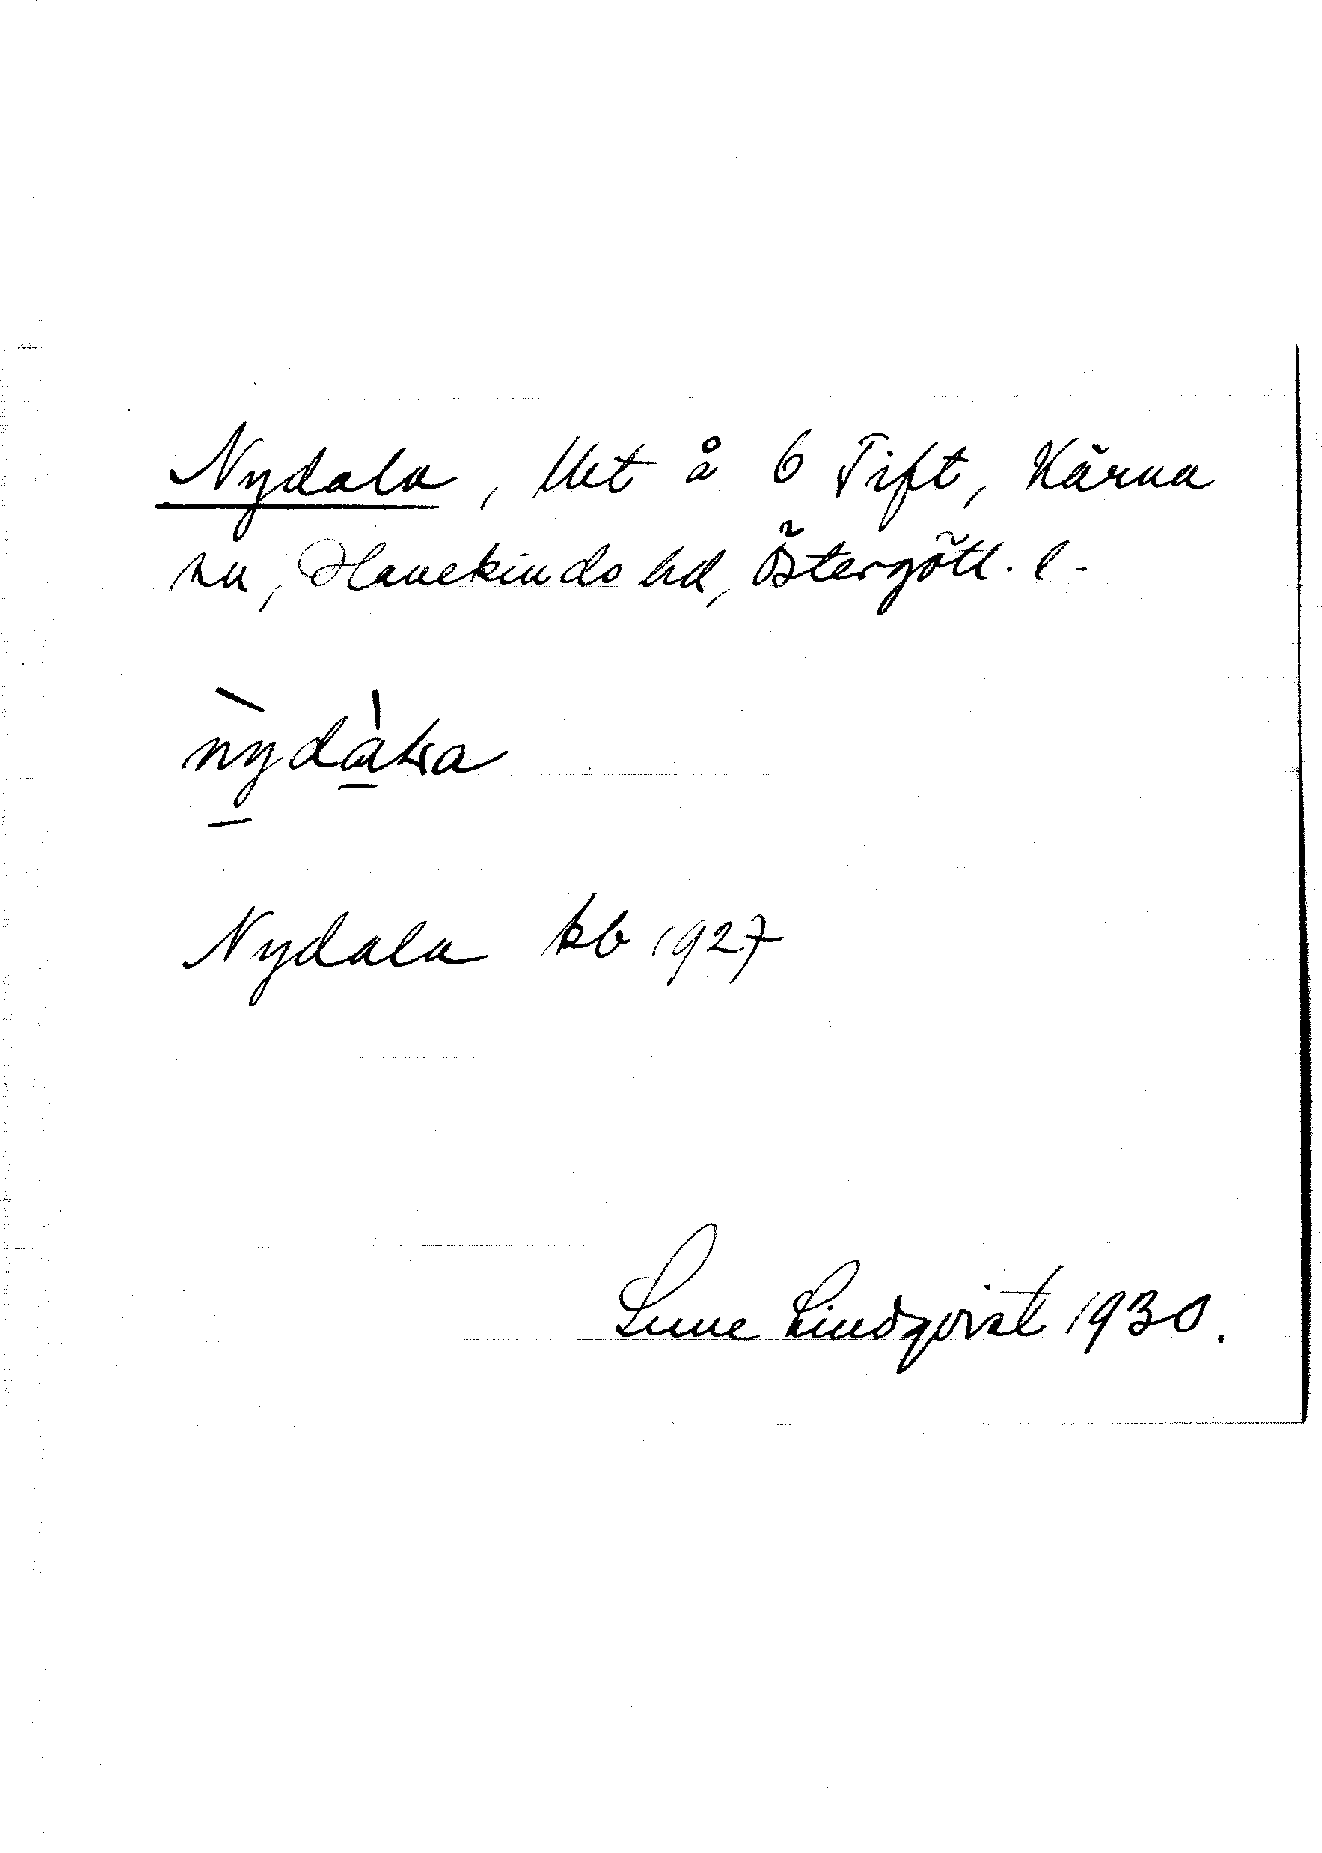 Nydala, lht å 6 Tift, Kärna
sn, Hanekinds hd, Östergötl. l.
nỳdàla
Nydala kb 1927
Sune Lindqvist 1930.